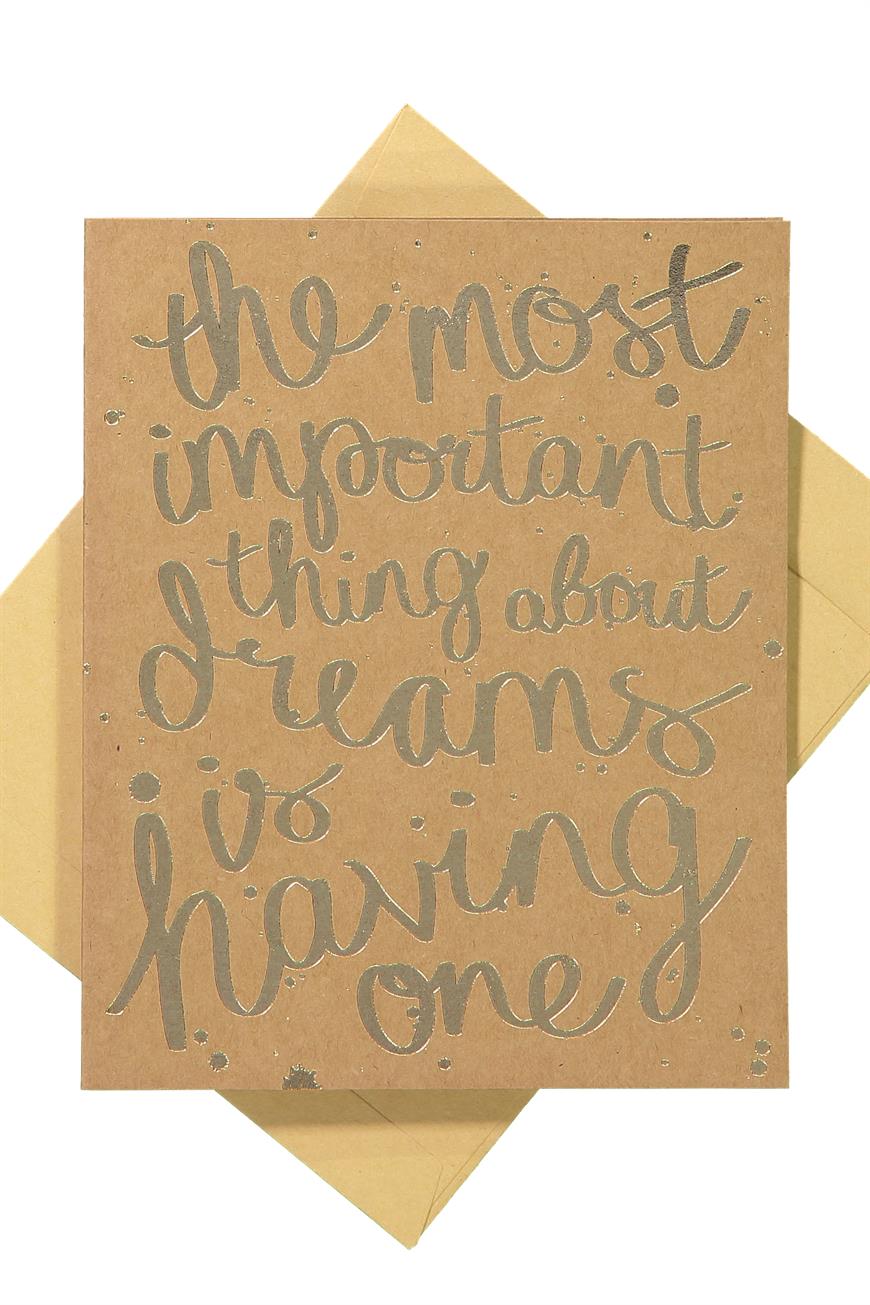 the most
important
thing about
dreams
is
having
one